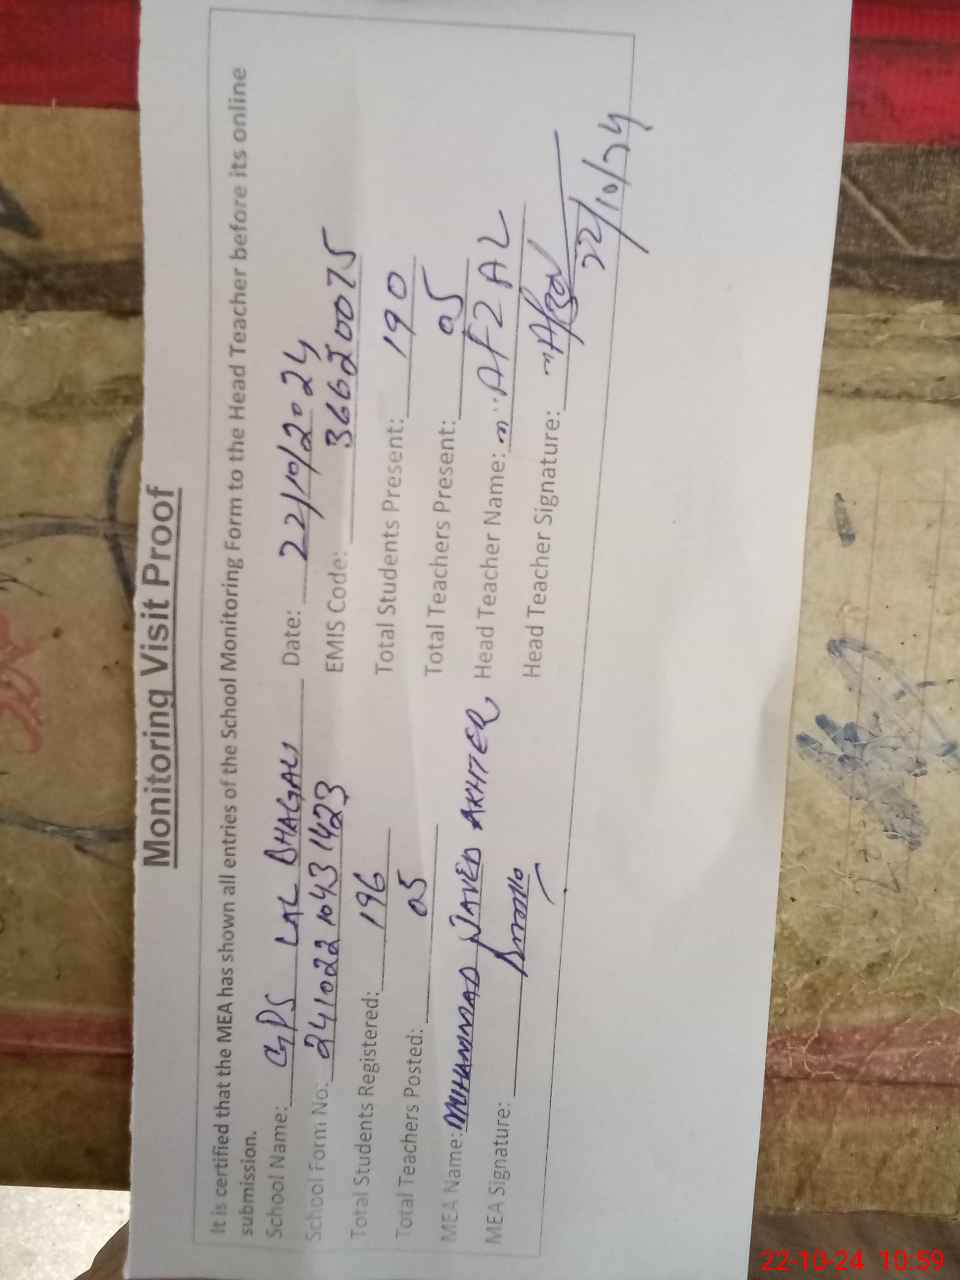 Monitoring Visit Proof
It is certified that the MEA has shown all entries of the School Monitoring Form to the Head Teacher before its online
submission.
School Name: GPS LAL BHAGALI Date: 22/10/2024
School Form No: 241022 1043 1423 EMIS Code: 36620075
Total Students Registered: 196 Total Students Present: 190
Total Teachers Posted: 05 Total Teachers Present: 05
MEA Name: MUHAMMAD JAVED AKHTER Head Teacher Name: M. AFZAL
MEA Signature: Head Teacher Signature: M. Afzal
22/10/24
22-10-24 10:59